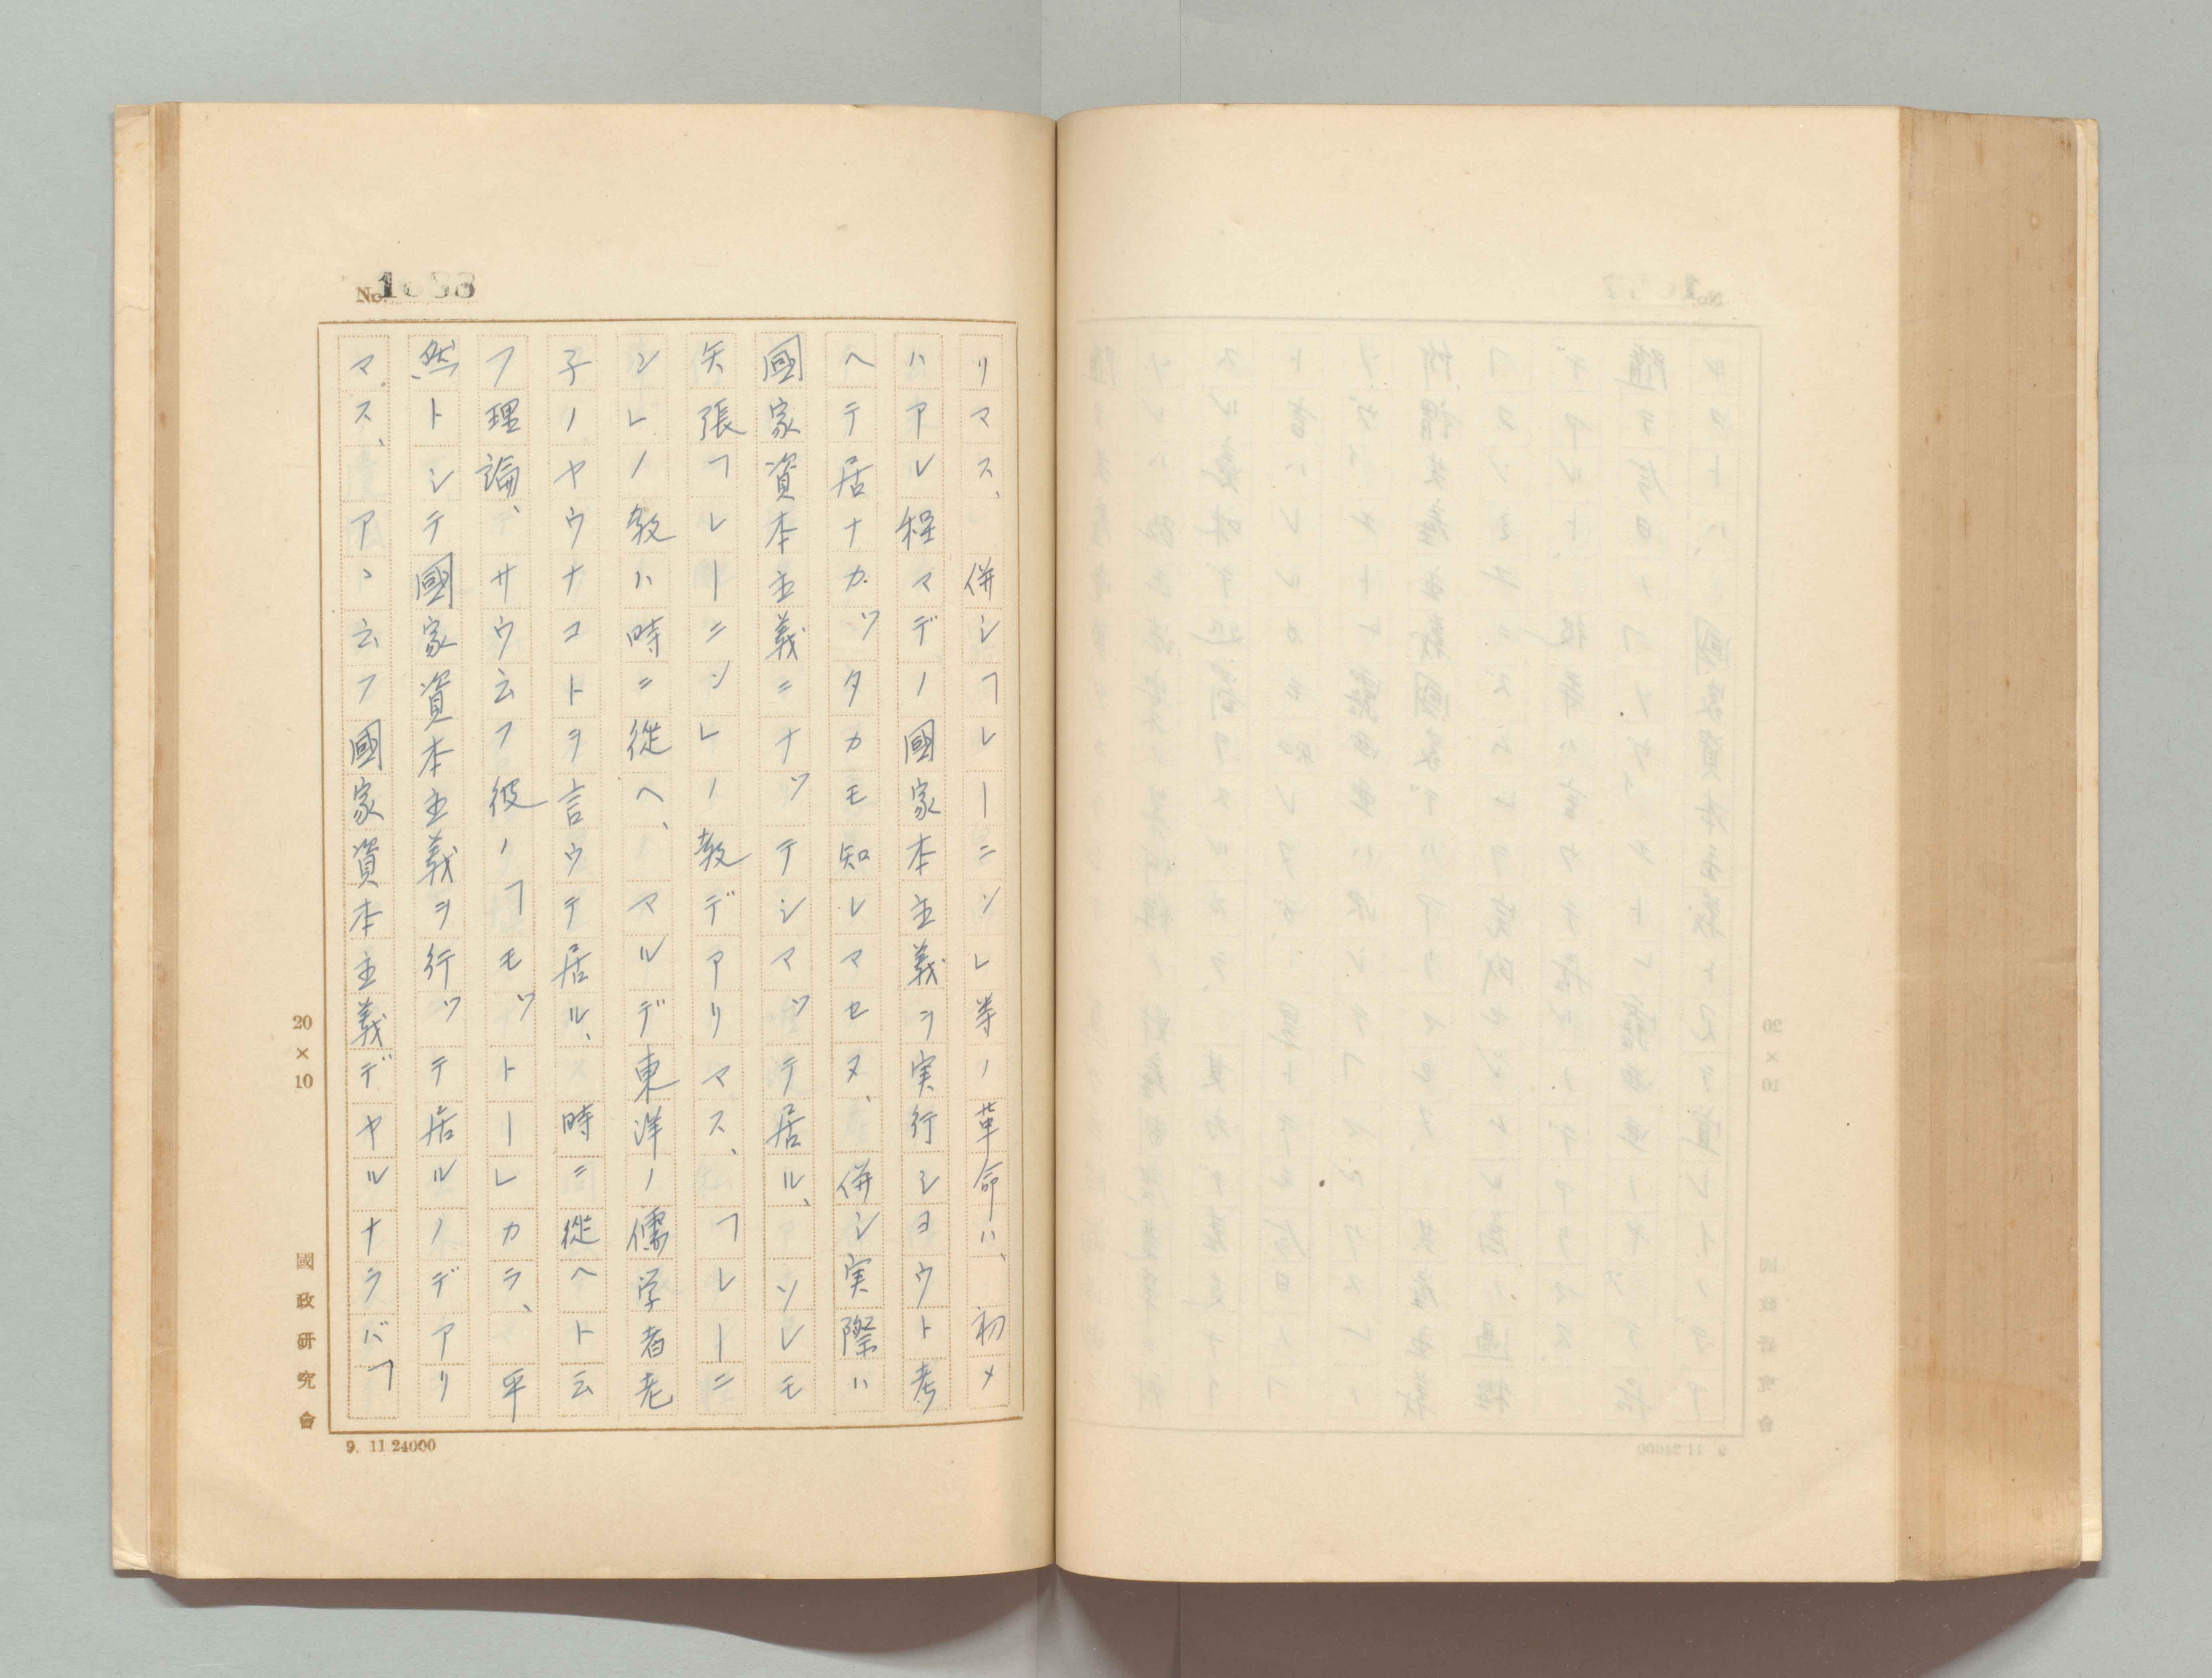 No.
リマス、 併シ「レーニン」等ノ革命ハ、 初メ
ハアレ程マデノ國家本主義ヲ実行シヨウト考
ヘテ居ナカツタカモ知レマセヌ、 併シ実際ハ
國家資本主義ニナツテシマツテ居ル、 ソレモ
矢張「レーニン」ノ教デアリマス、 「レーニ
ン」ノ教ハ時ニ從ヘ、 マルデ東洋ノ儒学者老
子ノヤウナコトヲ言ウテ居ル、 時ニ從ヘト云
フ理論、 サウ云フ彼ノ「モツトー」カラ、 平
然トシテ國家資本主義ヲ行ツテ居ルノデアリ
マス、 アヽ云フ國家資本主義デヤルナラバ「
20×10
國政研究會
9. 11 24000